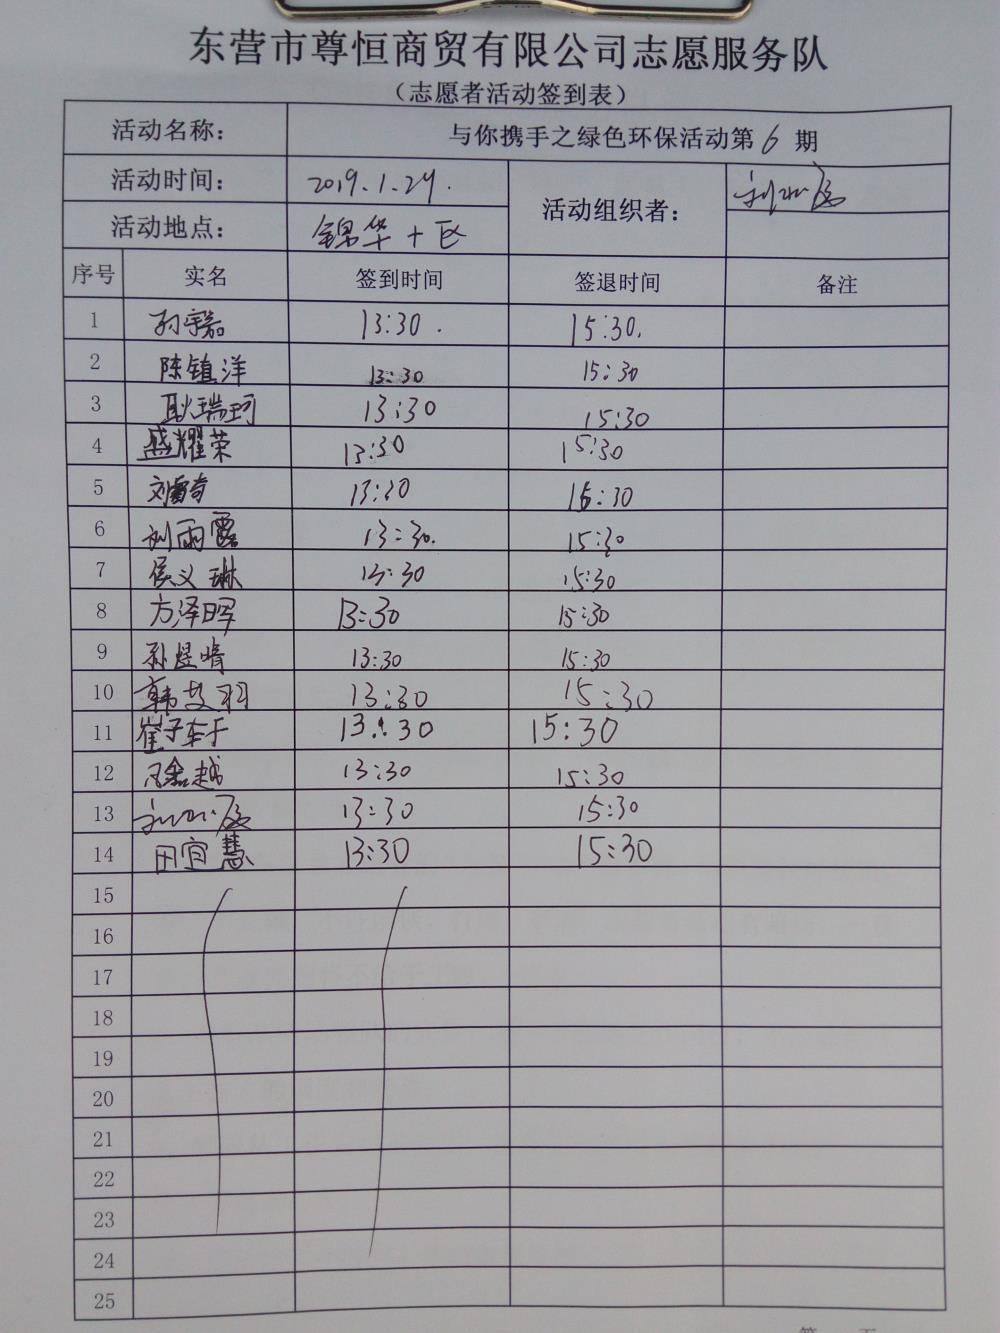 东营市尊恒商贸有限公司志愿服务队
（志愿者活动签到表）
活动名称： 与你携手之绿色环保活动第6期
活动时间： 2019.1.24. 活动组织者：
活动地点： 锦华十区
序号 实名 签到时间 签退时间 备注
1 13:30. 15:30.
2 陈镇洋 13:30 15:30
3 耿瑞珂 13:30 15:30
4 盛耀荣 13:30 15:30
5 13:30 15:30
6 刘雨露 13:30. 15:30
7 侯义琳 13:30 15:30
8 方泽晖 13:30 15:30
9 孙煜晴 13:30 15:30
10 韩艾羽 13:30 15:30
11 崔子 13:30 15:30
12 越 13:30 15:30
13 13:30 15:30
14 田宜慧 13:30 15:30
15
16
17
18
19
20
21
22
23
24
25